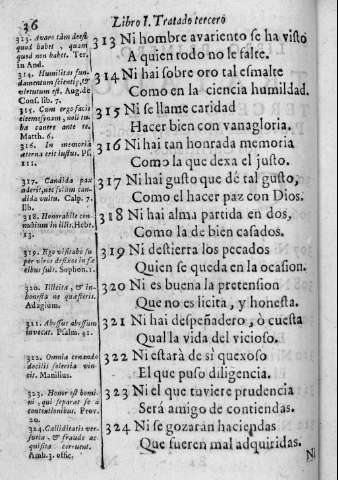 36
Libro I. Tratado tercero
313. Avaro tàm deest
quod habet, quam
quod non habet. Ter.
in And.
314. Humilitas fun-
damentum scientię, &
virtutum est. Aug. de
Cons. lib. 7.
315. Cum ergo facis
eleemosynam, noli tu-
ba canere ante te.
Matth. 6.
316. In memoria
æterna erit iustus. Ps.
111.
317. Candida pax
Calp. 7.
318. Honorabile con-
nubium in
Hebr.
13.
319. Ego visitabo su-
per viros defixos in fæ-
cibus suis. Sophon. 1.
320. Illicita, & in-
honesta ne quæsieris.
Adagium.
321. Abyssus abyssum
invocat. Psalm. 41.
322. Omnia conando
docilis solertia vin-
cit. Manilius.
323. Honor est homi-
ni, qui separat se à
contentionibus. Prov.
20.
324. Calliditatis ver-
sutia, & fraude ac-
quisita
Amb. 3. offic.
313 Ni hombre avariento se ha visto
A quien todo no le falte.
314 Ni hai sobre oro tal esmalte
Como en la ciencia humildad.
315 Ni se llame caridad
Hacer bien con vanagloria.
316 Ni hai tan honrada memoria
Como la que dexa el justo.
317 Ni hai gusto que dé tal gusto,
Como el hacer paz con Dios.
318 Ni hai alma partida en dos,
Como la de bien casados.
319 Ni destierra los pecados
Quien se queda en la ocasion.
320 Ni es buena la pretension
Que no es licita, y honesta.
321 Ni hai despeñadero, ò cuesta
Qual la vida del vicioso.
322 Ni estará de sí quexoso
El que puso diligencia.
323 Ni el que tuviere prudencia
Será amigo de contiendas.
324 Ni se gozarán haciendas
Que fueren mal adquiridas.
Ni